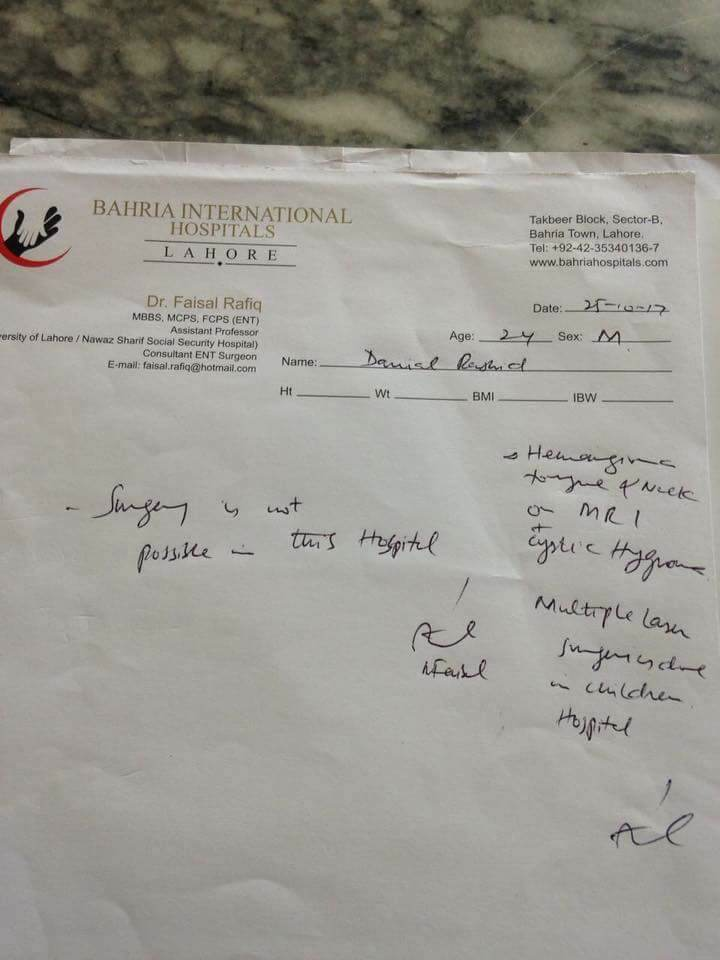 BAHRIA INTERNATIONAL
HOSPITALS
LAHORE
Takbeer Block, Sector-B,
Bahria Town, Lahore.
Tel: +92-42-35340136-7
www.bahriahospitals.com
Dr. Faisal Rafiq
MBBS, MCPS, FCPS (ENT)
Assistant Professor
versity of Lahore / Nawaz Sharif Social Security Hospital)
Consultant ENT Surgeon
E-mail: faisal.rafiq@hotmail.com
Date: 25-10-17
Age: 24 Sex: M
Name: Danial Rashid
Ht Wt BMI IBW
Hemangioma
tongue & Neck
on MRI
+
Cystic Hygroma
Multiple Laser
Surgeries done
in children
Hospital
- Surgery is not
possible in this Hospital
Faisal